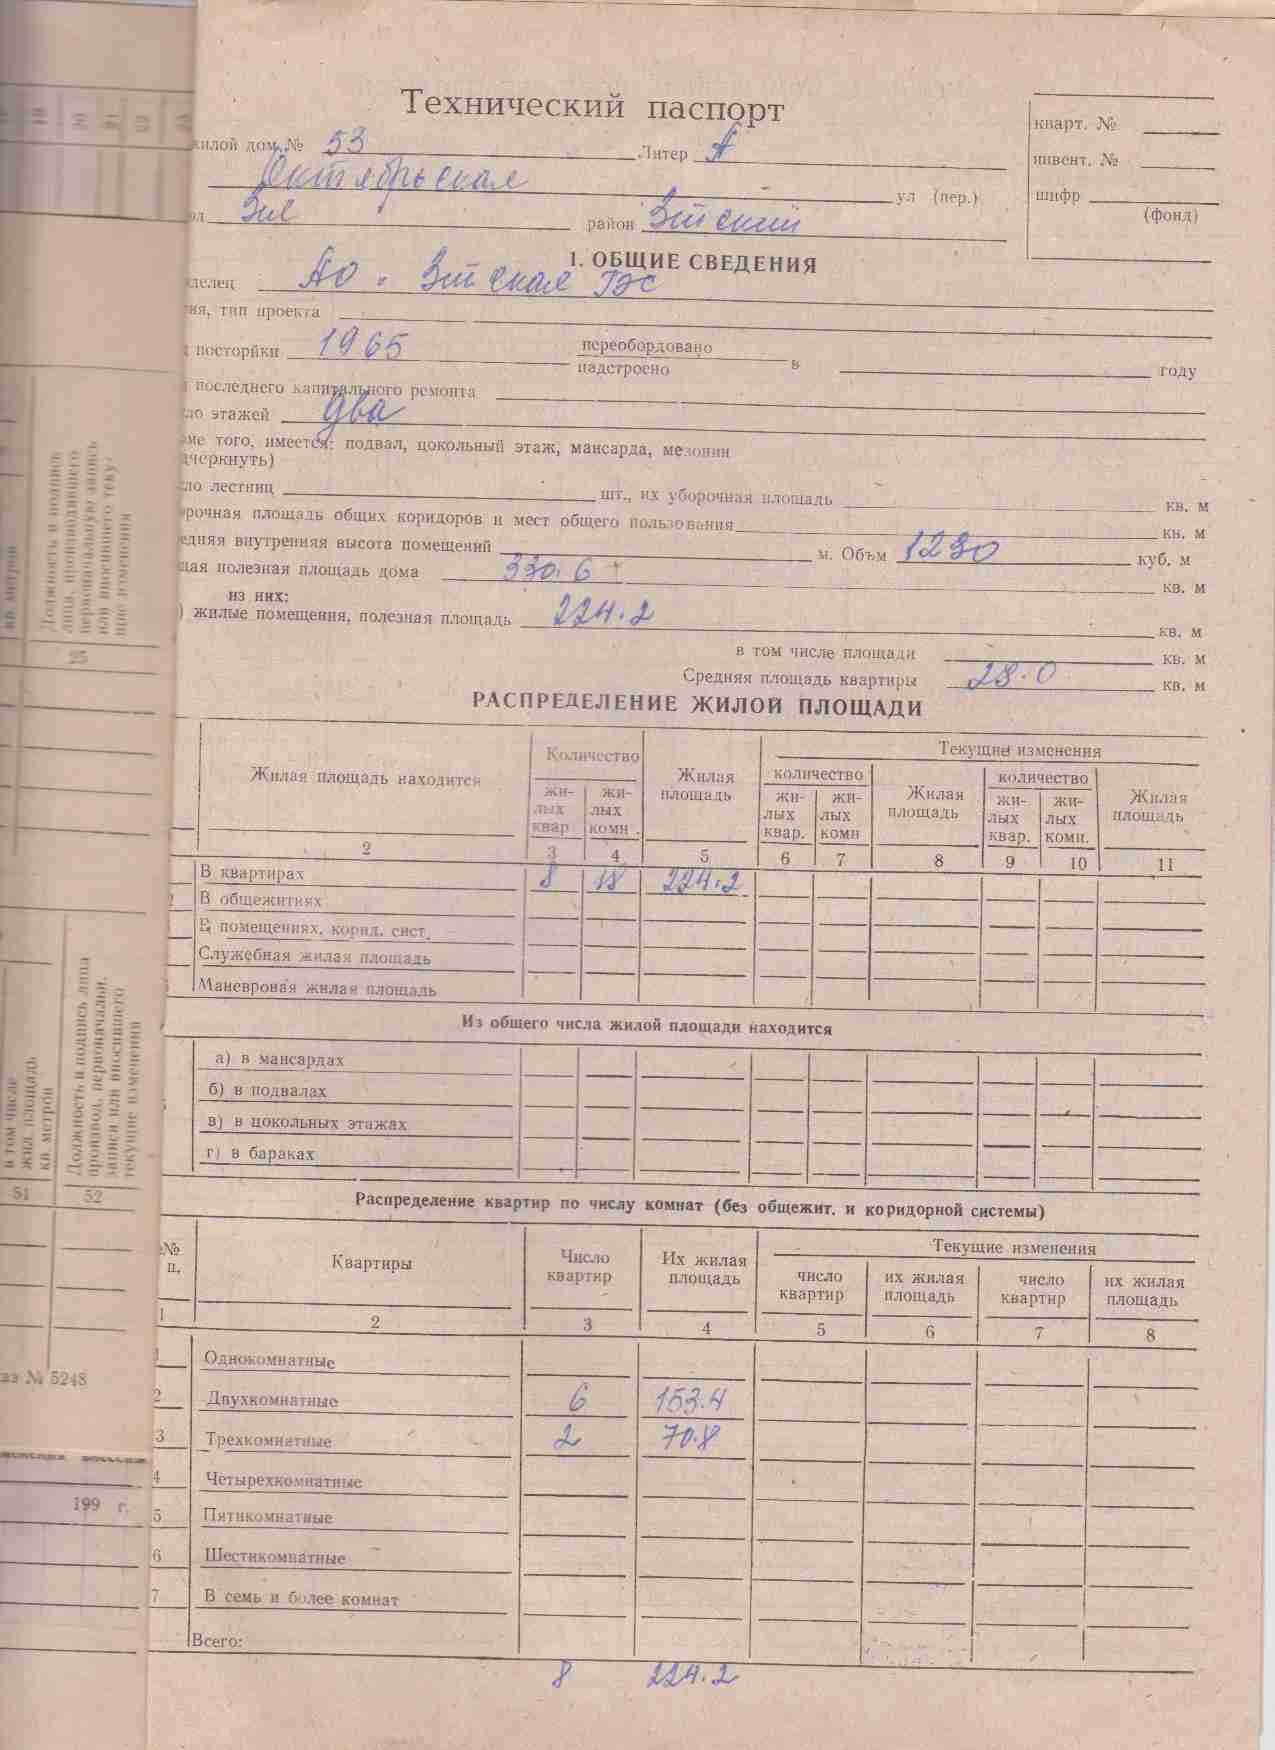 Технический паспорт
жилой дом № 53 Литер А
Октябрьская ул (пер.)
Зея район Зейский
кварт. №
инвент. №
шифр
(фонд)
1. ОБЩИЕ СВЕДЕНИЯ
делец АО " Зейская ГЭС
ия, тип проекта
посторйки 1965 переобордовано
надстроено в году
последнего капитального ремонта
ло этажей два
ме того, имеется: подвал, цокольный этаж, мансарда, мезонин
дчеркнуть)
ло лестниц шт., их уборочная площадь кв. м
рочная площадь общих коридоров и мест общего пользования кв. м
едняя внутренняя высота помещений м. Объм 1230 куб. м
щая полезная площадь дома 330.6 кв. м
из них:
) жилые помещения, полезная площадь 224.2 кв. м
в том числе площади кв. м
Средняя площадь квартиры 28.0 кв. м
РАСПРЕДЕЛЕНИЕ ЖИЛОЙ ПЛОЩАДИ
Жилая площадь находится Количество Жилая площадь Текущие изменения
количество Жилая площадь количество Жилая площадь
жи-лых квар жи-лых комн. жи-лых квар. жи-лых комн жи-лых квар. жи-лых комн.
2 3 4 5 6 7 8 9 10 11
В квартирах 8 18 224.2
2 В общежитиях
В помещениях. корид. сист.
Служебная жилая площадь
Маневровая жилая площадь
Из общего числа жилой площади находится
а) в мансардах
б) в подвалах
в) в цокольных этажах
г) в бараках
Распределение квартир по числу комнат (без общежит. и коридорной системы)
№ п. Квартиры Число квартир Их жилая площадь Текущие изменения
число квартир их жилая площадь число квартир их жилая площадь
1 2 3 4 5 6 7 8
1 Однокомнатные
2 Двухкомнатные 6 153.4
3 Трехкомнатные 2 70.8
4 Четырехкомнатные
5 Пятикомнатные
6 Шестикомнатные
7 В семь и более комнат
Всего:
8 224.2
кв. метров
Должность и подпись
лица, производившего
первоначальную запись
или вносившего теку-
щие изменения
25
в том числе
жил. площадь
кв. метров
Должность и подпись лица
производ. первоначальн.
записи или вносившего
текущие изменения
51 52
аз № 5248
199 г.